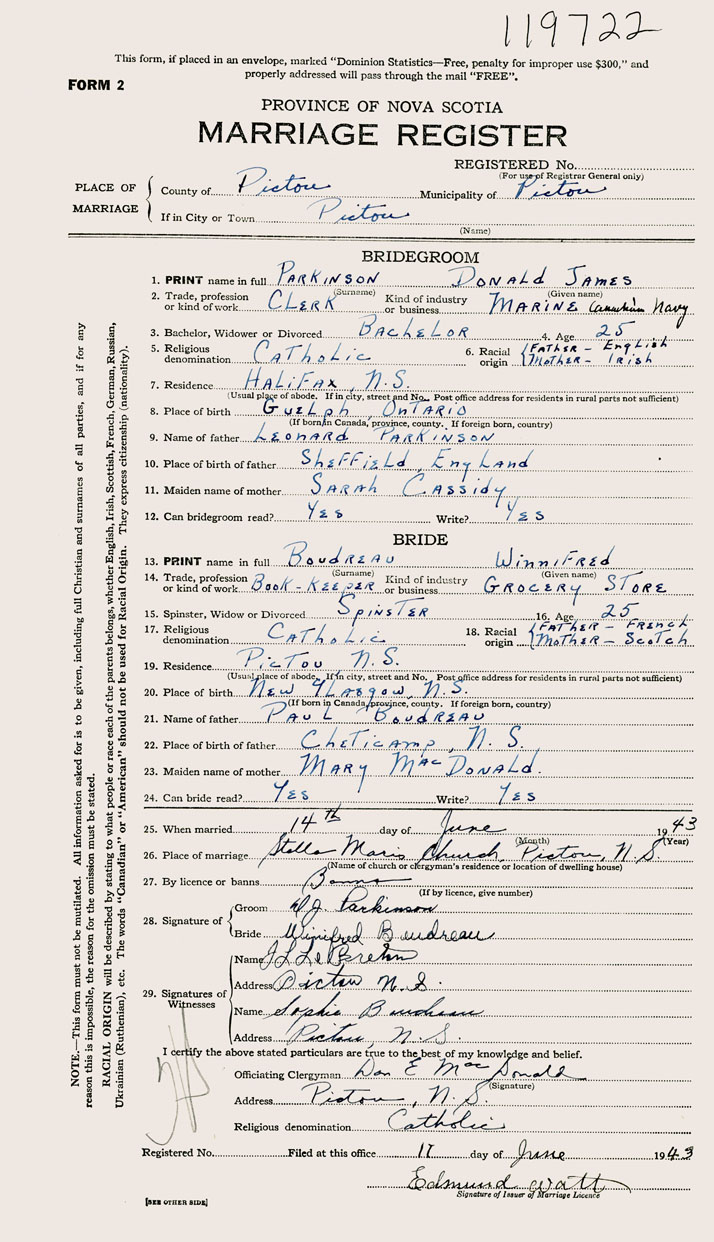 119722
This form, if placed in an envelope, marked "Dominion Statistics—Free, penalty for improper use $300," and
properly addressed will pass through the mail "FREE".
FORM 2
PROVINCE OF NOVA SCOTIA
MARRIAGE REGISTER
REGISTERED No.
(For use of Registrar General only)
PLACE OF MARRIAGE
County of Pictou Municipality of Pictou
If in City or Town Pictou
(Name)
BRIDEGROOM
1. PRINT name in full PARKINSON DONALD JAMES
(Surname) (Given name)
2. Trade, profession or kind of work CLERK Kind of industry or business MARINE Canadian Navy
3. Bachelor, Widower or Divorced BACHELOR 4. Age 25
5. Religious denomination CATHOLIC 6. Racial origin FATHER - English MOTHER - Irish
7. Residence HALIFAX, N.S.
(Usual place of abode. If in city, street and No. Post office address for residents in rural parts not sufficient)
8. Place of birth GUELPH, ONTARIO
(If born in Canada, province, county. If foreign born, country)
9. Name of father LEONARD PARKINSON
10. Place of birth of father SHEFFIELD, ENGLAND
11. Maiden name of mother SARAH CASSIDY
12. Can bridegroom read? YES Write? YES
BRIDE
13. PRINT name in full BOUDREAU WINNIFRED
(Surname) (Given name)
14. Trade, profession or kind of work BOOK-KEEPER Kind of industry or business GROCERY STORE
15. Spinster, Widow or Divorced SPINSTER 16. Age 25
17. Religious denomination CATHOLIC 18. Racial origin FATHER - FRENCH MOTHER - SCOTCH
19. Residence PICTOU N.S.
(Usual place of abode. If in city, street and No. Post office address for residents in rural parts not sufficient)
20. Place of birth NEW GLASGOW, N.S.
(If born in Canada, province, county. If foreign born, country)
21. Name of father PAUL BOUDREAU
22. Place of birth of father CHETICAMP, N.S.
23. Maiden name of mother MARY MacDONALD.
24. Can bride read? YES Write? YES
25. When married 14th day of June 1943
(Month) (Year)
26. Place of marriage Stella Maris Church, Pictou, N.S.
(Name of church or clergyman's residence or location of dwelling house)
27. By licence or banns Banns
(If by licence, give number)
28. Signature of
Groom D.J. Parkinson
Bride Winifred Boudreau
29. Signatures of Witnesses
Name
Address Pictou N.S.
Name Sophie Boudreau
Address Pictou, N.S.
I certify the above stated particulars are true to the best of my knowledge and belief.
Officiating Clergyman Dan E MacDonald
(Signature)
Address Pictou, N.S.
Religious denomination Catholic
Registered No. Filed at this office 17 day of June 1943
Edmund Watt
Signature of Issuer of Marriage Licence
[SEE OTHER SIDE]
NOTE.—This form must not be mutilated. All information asked for is to be given, including full Christian and surnames of all parties, and if for any
reason this is impossible, the reason for the omission must be stated.
RACIAL ORIGIN will be described by stating to what people or race each of the parents belongs, whether English, Irish, Scottish, French, German, Russian,
Ukrainian (Ruthenian), etc. The words "Canadian" or "American" should not be used for Racial Origin. They express citizenship (nationality).